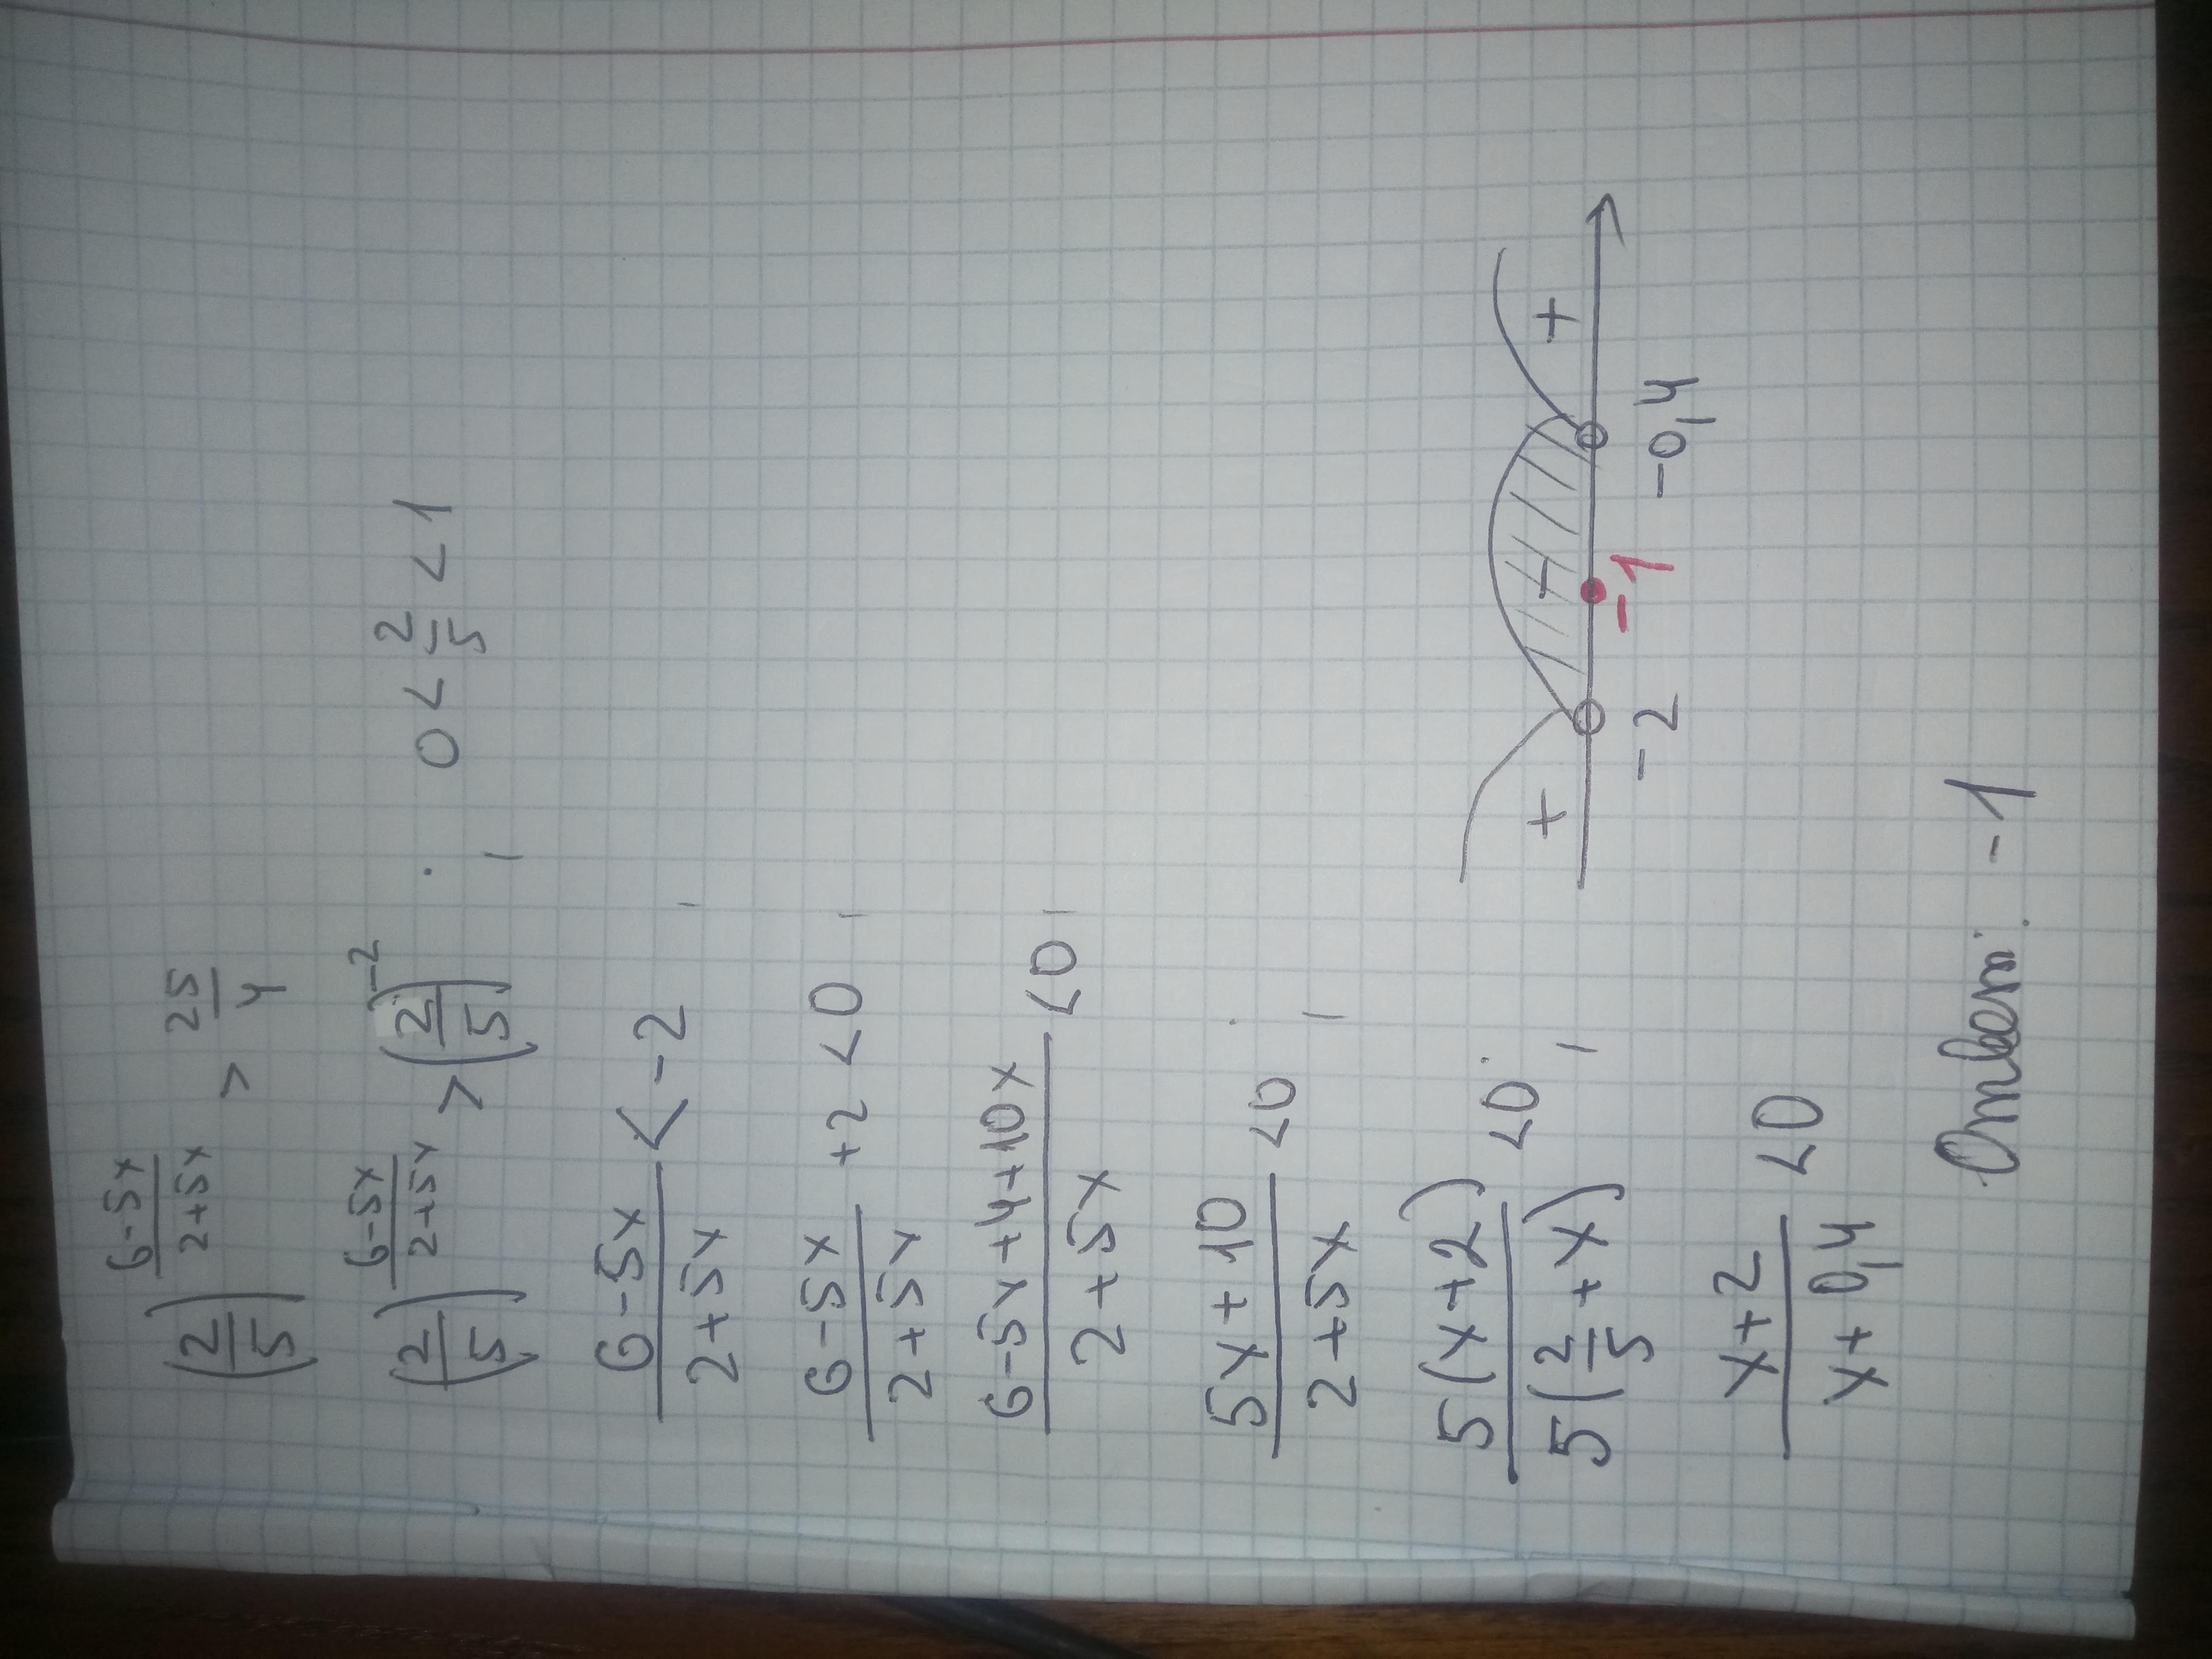 (2/5)^((6-5x)/(2+5x)) > 25/4
(2/5)^((6-5x)/(2+5x)) > (2/5)^(-2) ; 0 < 2/5 < 1
(6-5x)/(2+5x) < -2 ,
(6-5x)/(2+5x) +2 <0 ,
(6-5x+4+10x)/(2+5x) <0 ,
(5x+10)/(2+5x) <0 ;
(5(x+2))/(5(2/5+x)) <0 ;
(x+2)/(x+0,4) <0
+ - +
-2 -1 -0,4
Ответ: -1